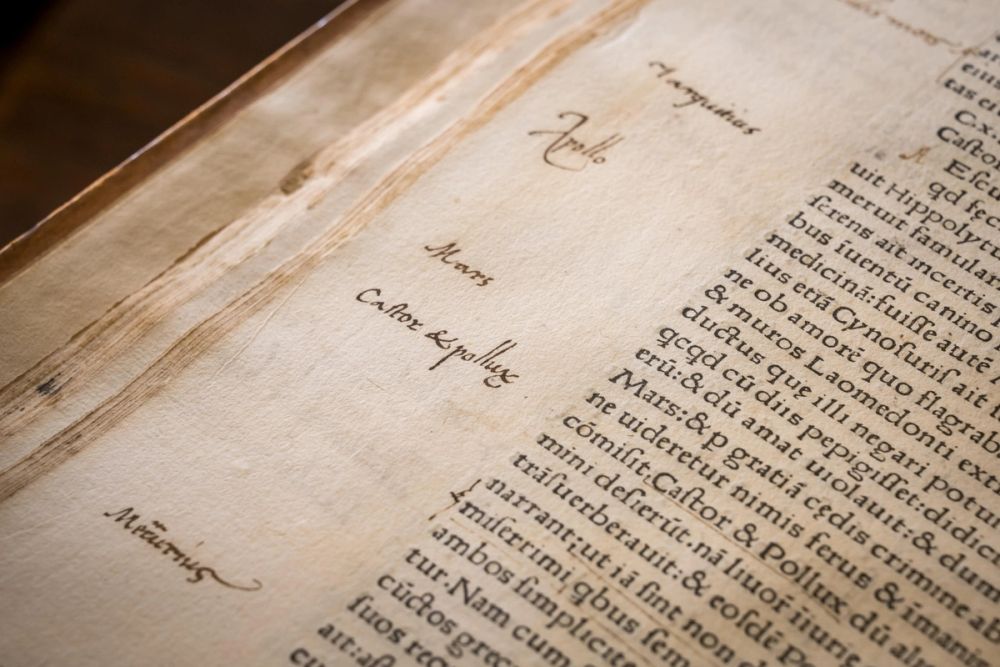 Apollo
Mars
Caſtor & pollux
eiu
tas ei
C.x.
Caſto
Eſcu
qd fęc
uit Hippolyt
merunt famular
ferens ait incertis
bus iuentū canino
medicinā: fuiſſe autē
lius etiā Cynoſuriſ ait
ne ob amorē quo flagrab
& muros Laomedonti extr
ductus quę illi negari potu
qcqd cū diis pepigiſſet: didici
erū: & dū amat uiolauit: & dum
Mars: & p gratiā cędis crimine ab
ne uideretur nimis ferus & imani
cōmiſit. Caſtor & Pollux dū al
mini deſierūt. nā liuor iiurie
trāſuerberauit: & eoſdē P
narrant: ut iā ſint non
miſerrimi qbus ſem
ambos ſimplicite
tur. Nam cum
cūctos gręc
ſuos rec
ait: aſ